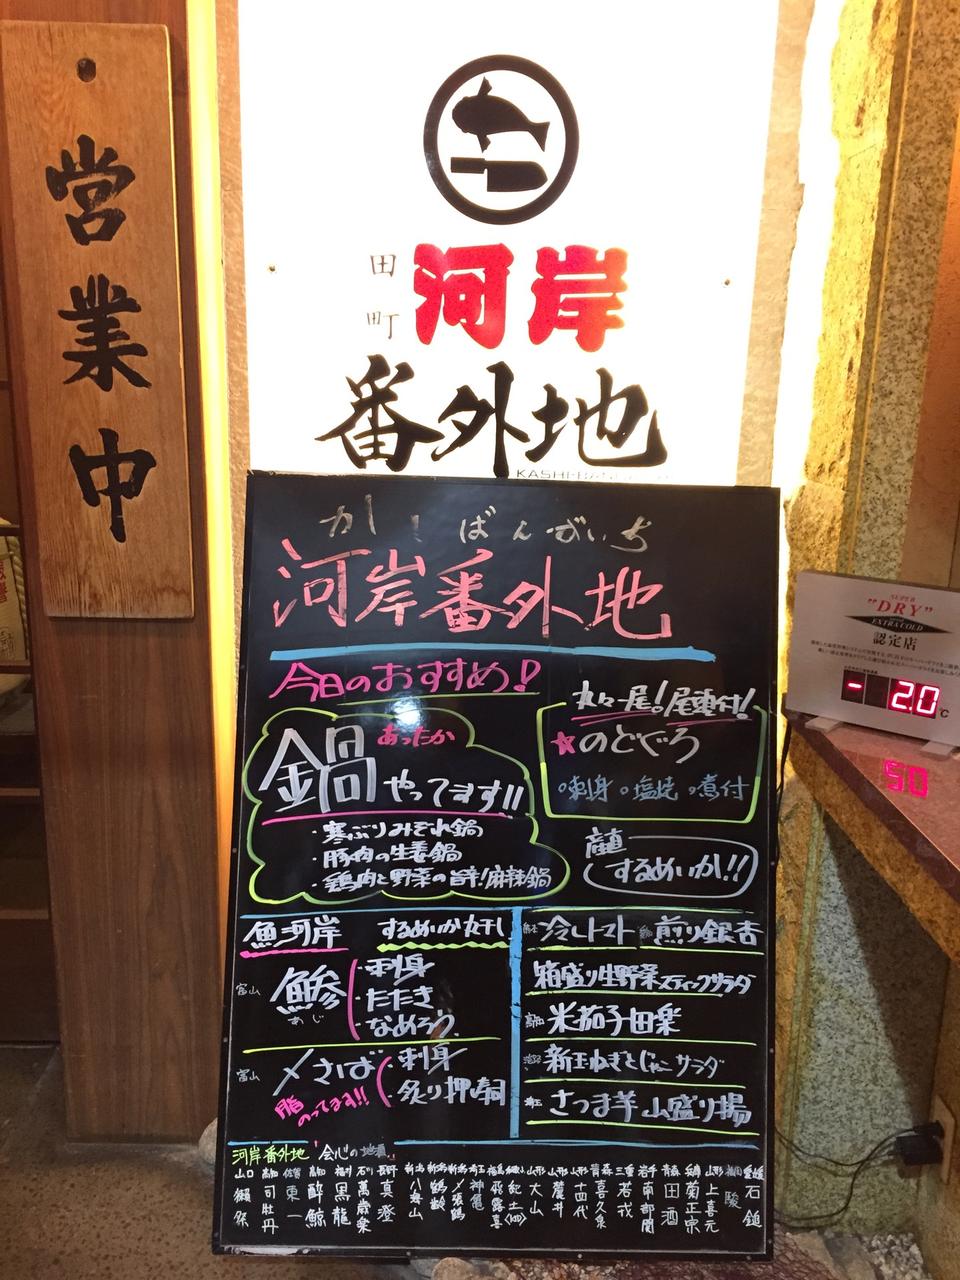 営業中
田町
河岸
番外地
かしばんがいち
河岸番外地
今日のおすすめ!
鍋あったか
やってます!!
・寒ぶりみぞれ鍋
・豚肉の生姜鍋
・鶏肉と野菜の旨辛!麻辣鍋
丸々一尾!尾頭付!
★のどぐろ
○刺身○塩焼○煮付
産直
するめいか!!
魚河岸 するめいか丸干し
富山 鯵 あじ
・刺身
・たたき
・なめろう
富山 〆さば
脂のってます!!
・刺身
・炙り押寿司
冷しトマト 煎り銀杏
箱盛り生野菜スティックサラダ
米茄子田楽
新玉ねぎとじゃこサラダ
さつま芋山盛り揚
河岸番外地 "会心の地酒"
山口 獺祭
高知 司牡丹
佐賀 東一
高知 酔鯨
福井 黒龍
石川 萬歳楽
長野 真澄
新潟 八海山
新潟 鶴齢
新潟 〆張鶴
埼玉 神亀
福島 飛露喜
和歌山 紀土
山形 大山
山形 麓井
山形 十四代
青森 喜久泉
三重 若戎
岩手 南部関
青森 田酒
新潟 菊正宗
山形 上喜元
愛媛 石鎚
SUPER
"DRY"
EXTRA COLD
認定店
-2.0℃